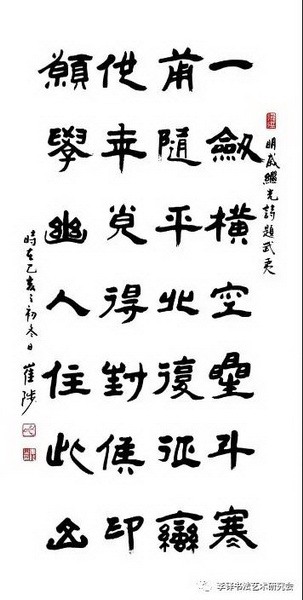 明戚繼光詩題武夷
一劔橫空曐斗寒
甫隨平北復征蠻
他年覓得封侯印
願學幽人住此山
時在己亥之初冬日 崔陟
李铎书法艺术研究会